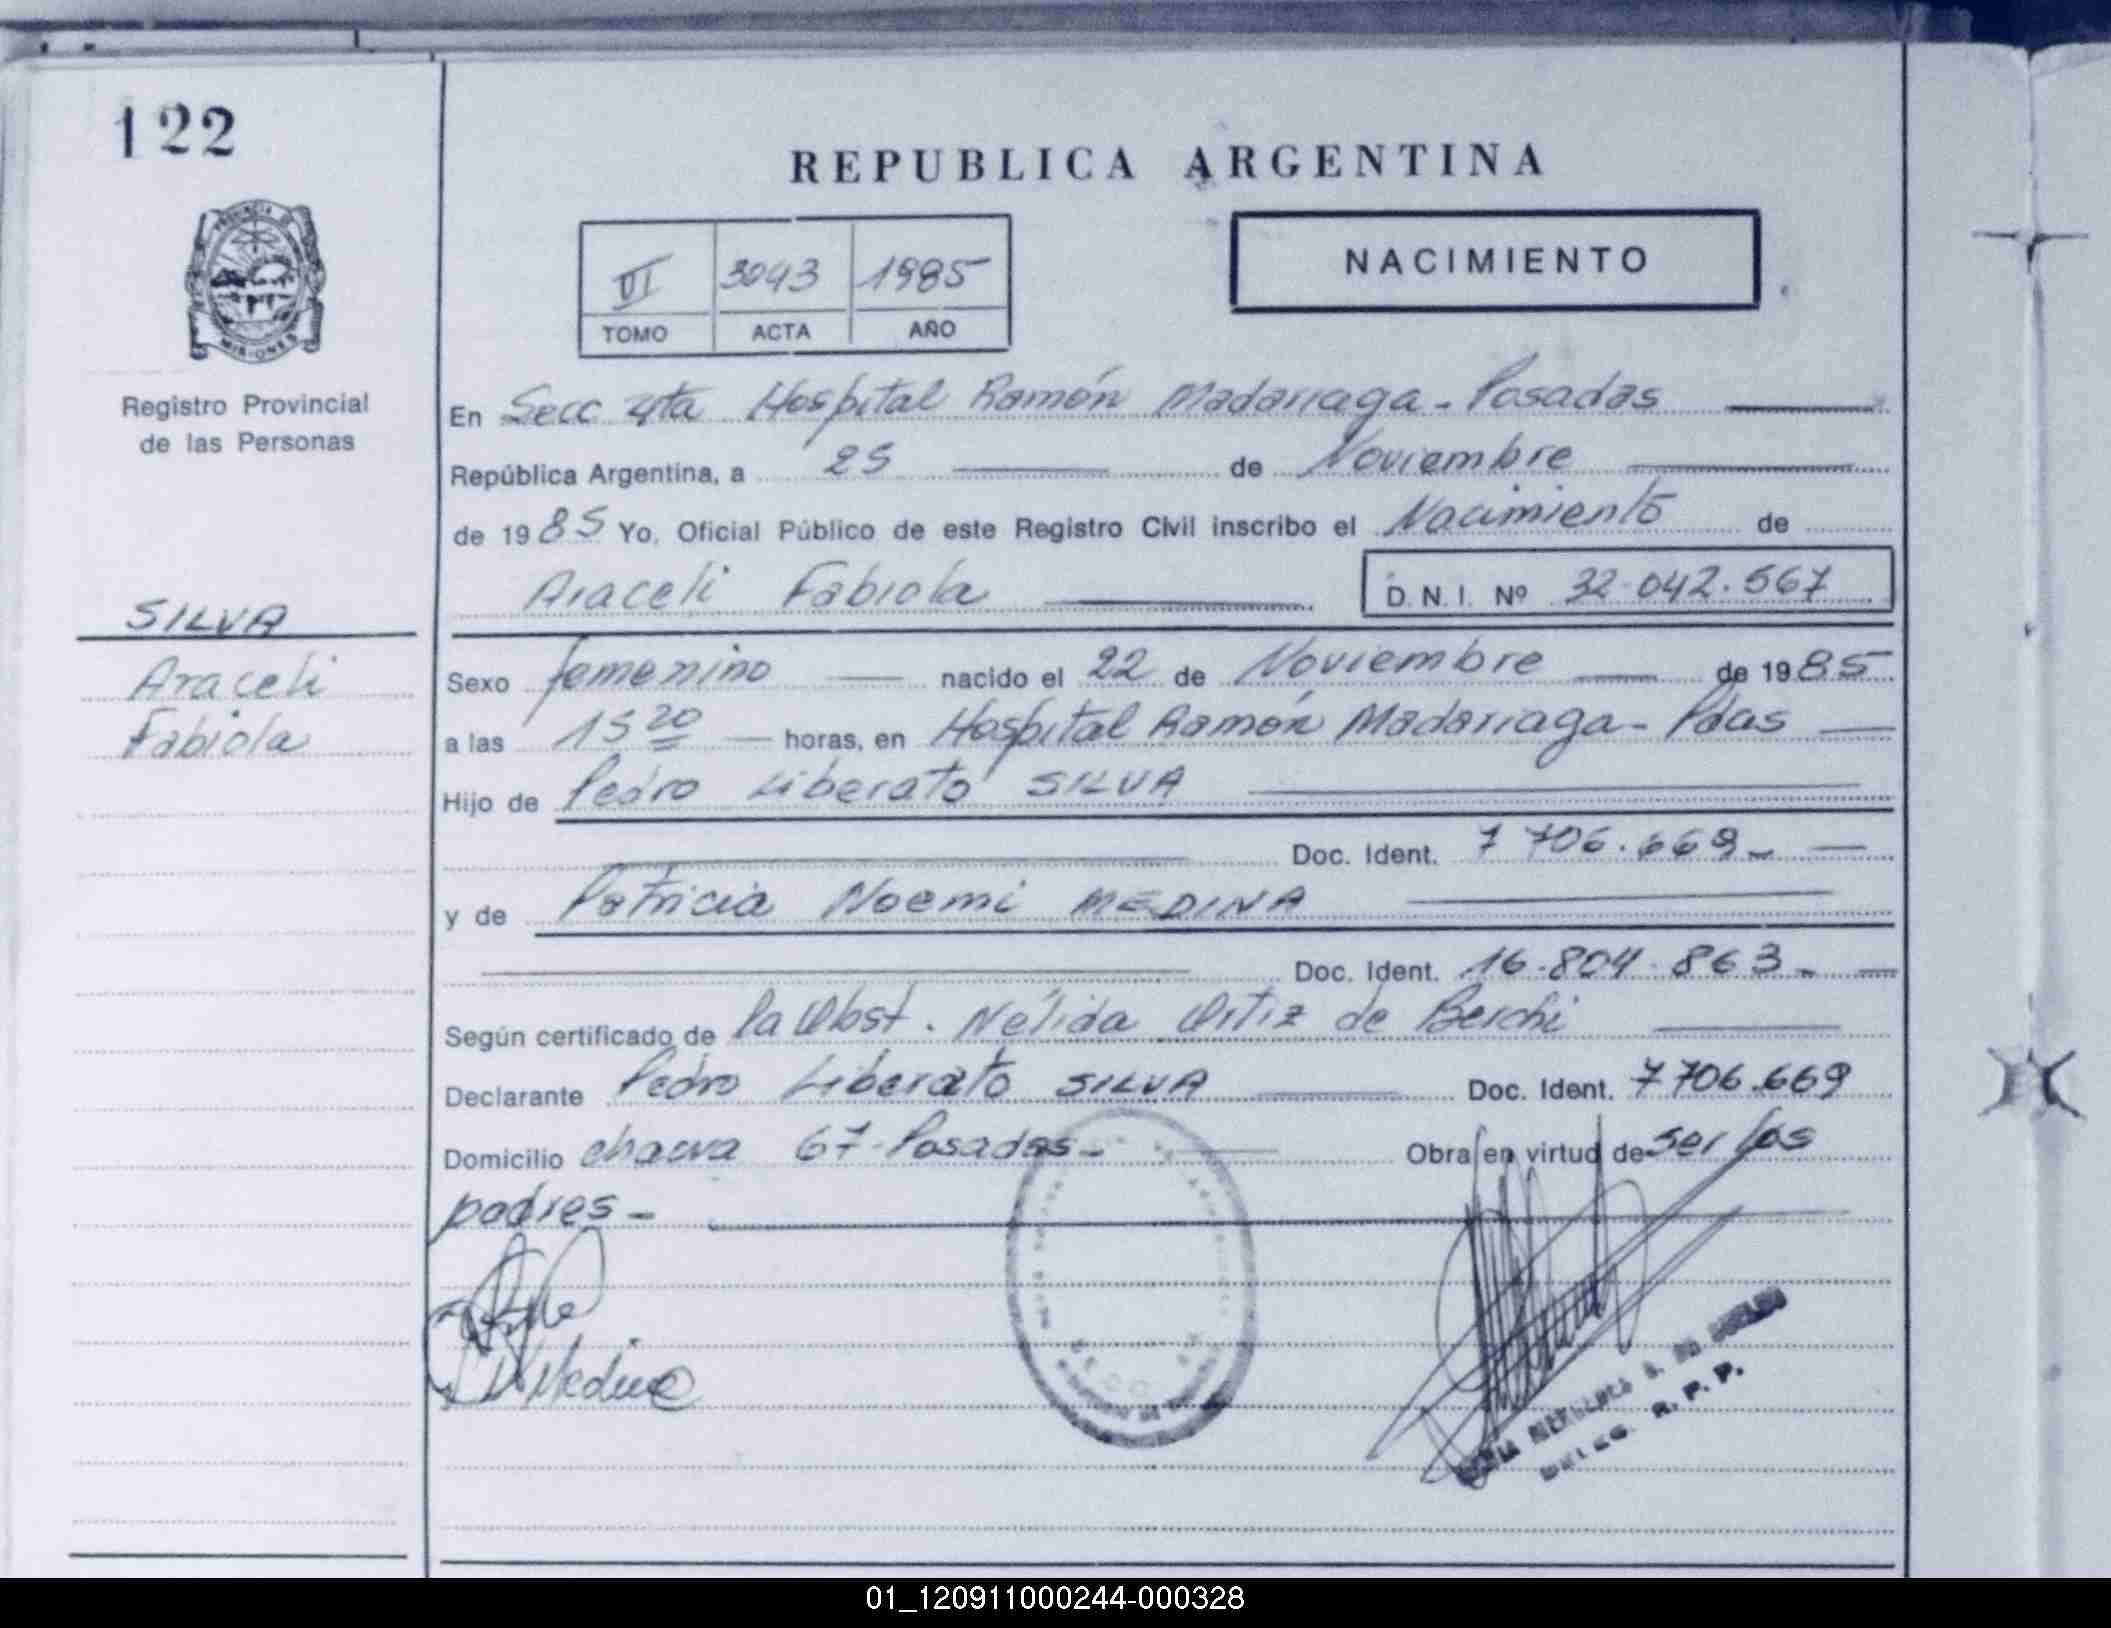 122
REPUBLICA ARGENTINA
PROVINCIA DE
MISIONES
VI 3043 1985
TOMO ACTA AÑO
NACIMIENTO
Registro Provincial
de las Personas
En Secc 4ta Hospital Ramón Madariaga - Posadas
República Argentina, a 25 de Noviembre
de 1985 Yo, Oficial Público de este Registro Civil inscribo el Nacimiento de
Araceli Fabiola D.N.I. Nº 32.042.567
SILVA
Araceli
Fabiola
Sexo femenino nacido el 22 de Noviembre de 1985
a las 15 20 horas, en Hospital Ramón Madariaga - Pdas
Hijo de Pedro Liberato SILVA
Doc. Ident. 7 706.669
y de Patricia Noemi MEDINA
Doc. Ident. 16.804.863
Según certificado de la Obst. Nélida Ortiz de Berchi
Declarante Pedro Liberato SILVA Doc. Ident. 7 706.669
Domicilio chacra 67 - Posadas - Obra en virtud de ser los
padres -
Medina
DELEG. R. P. P.
01_120911000244-000328